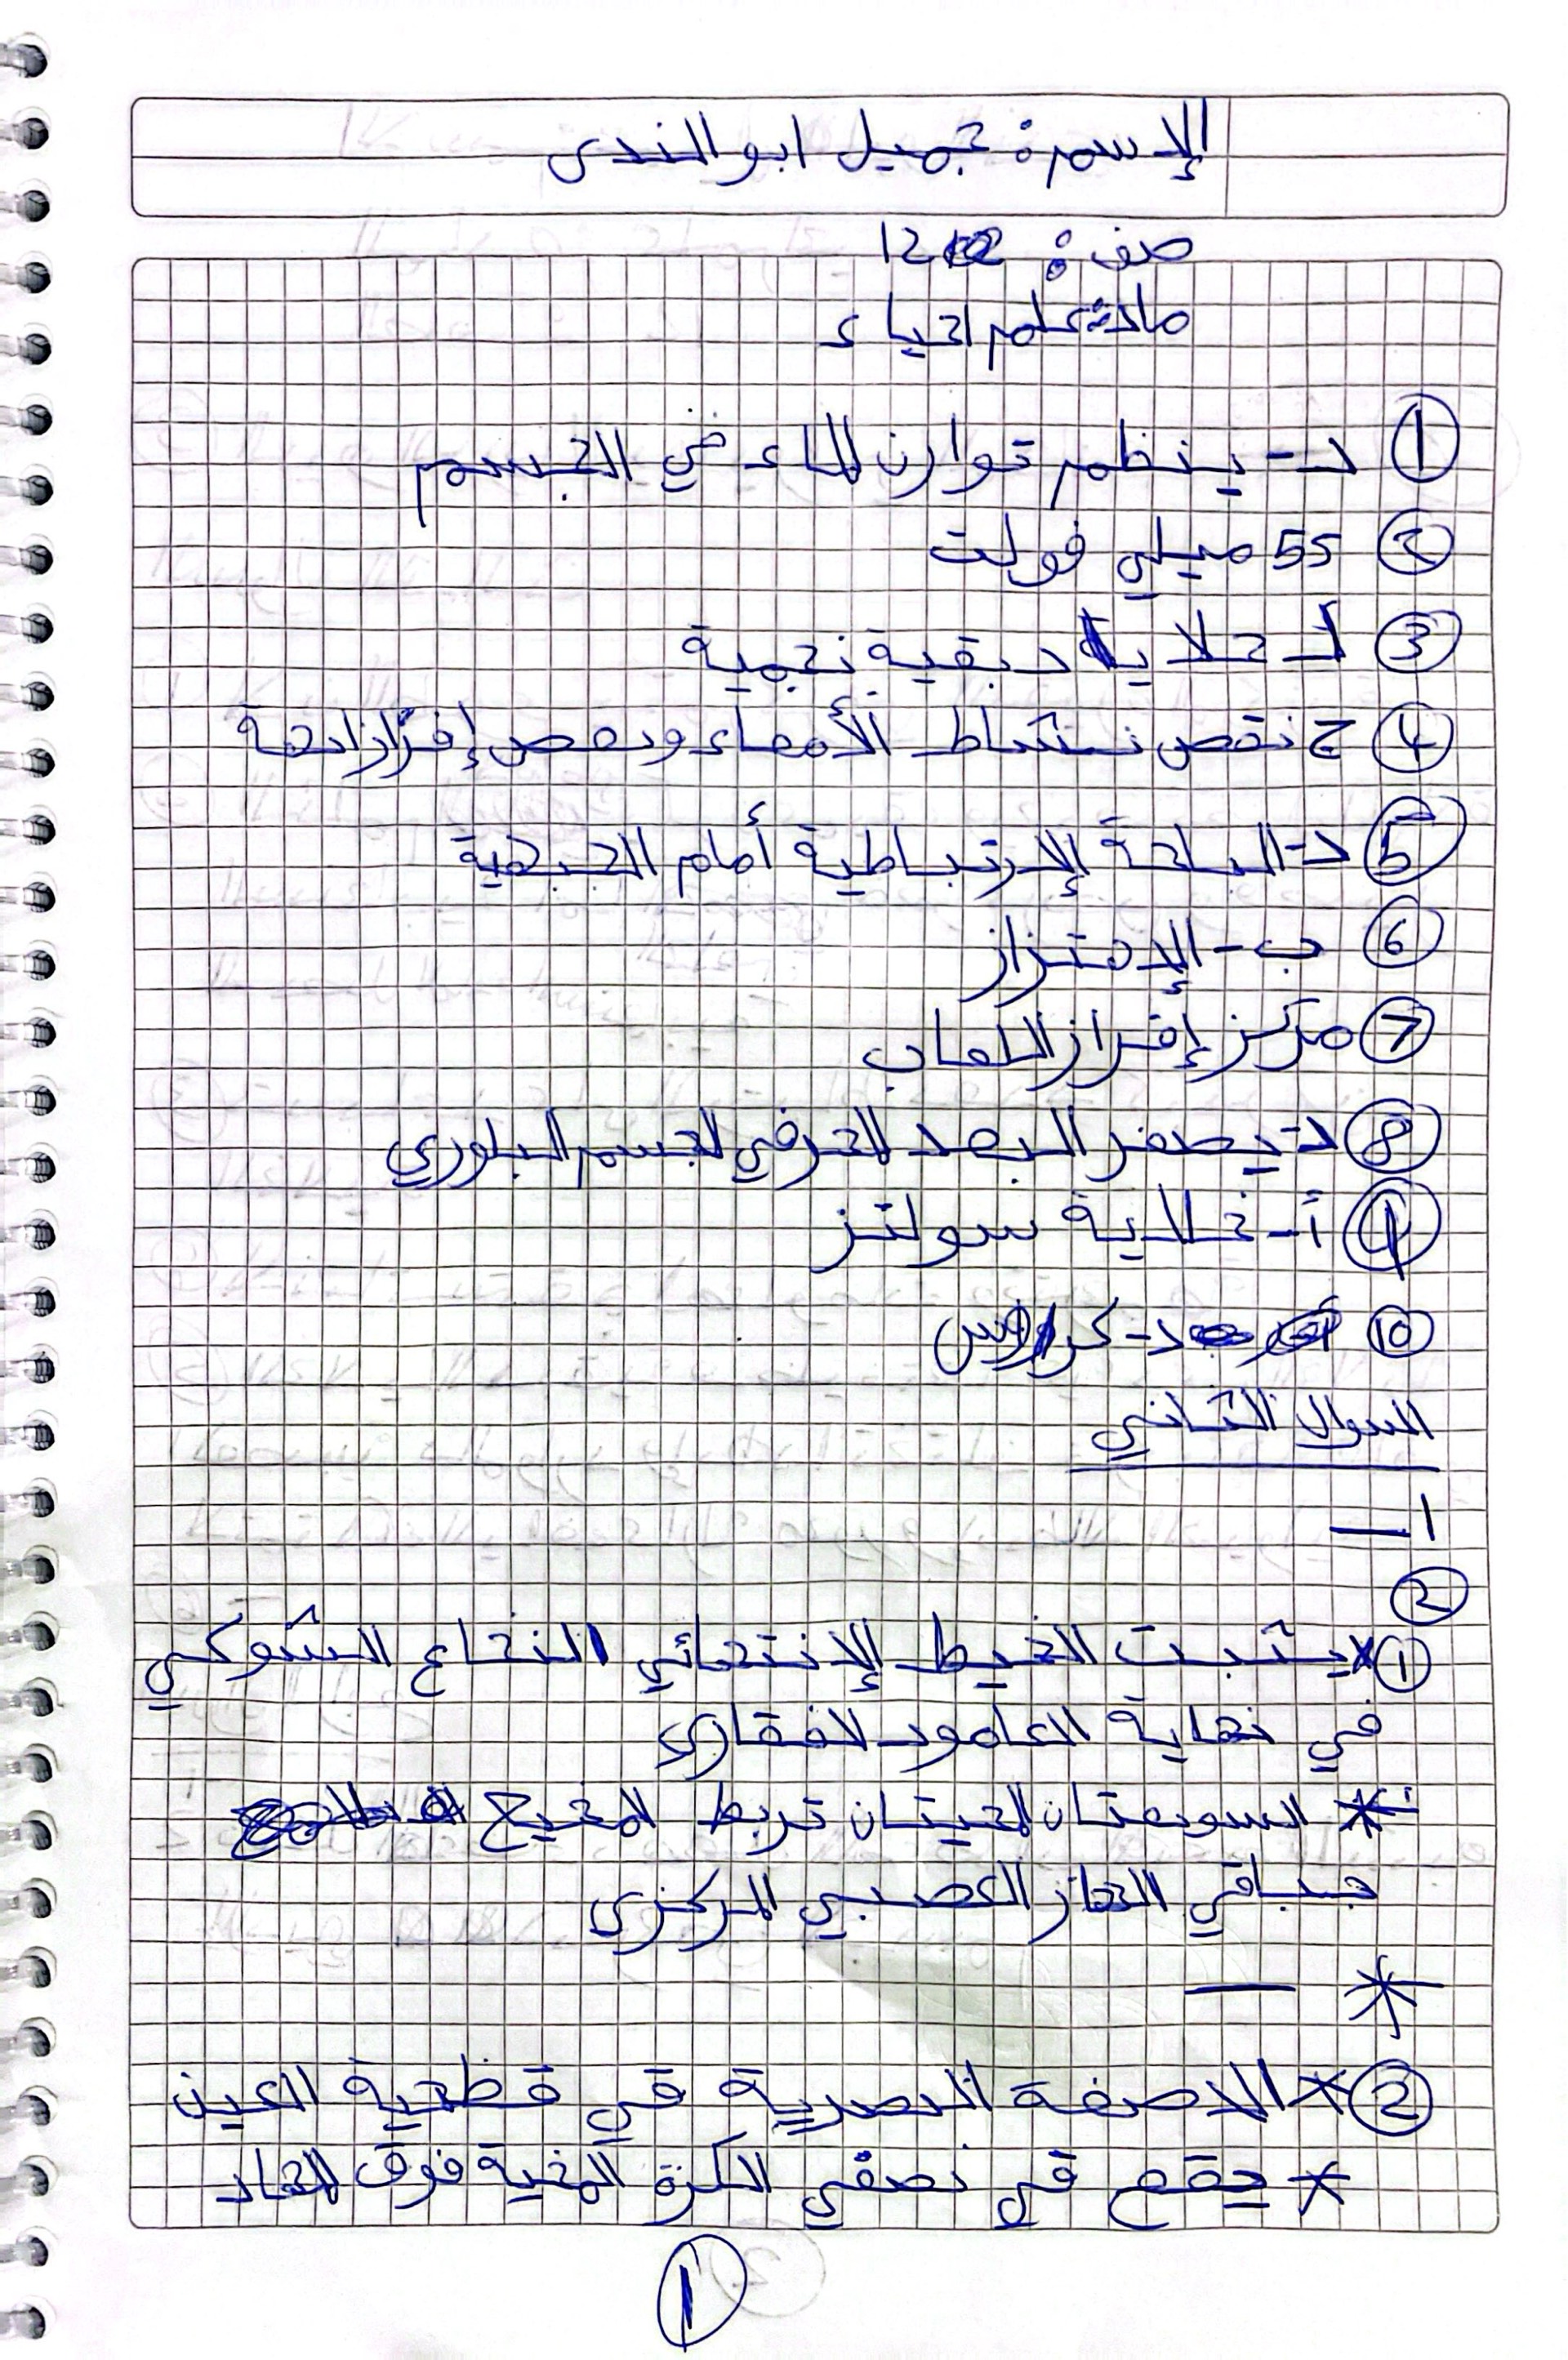 الإسم: جميل ابو الندى
صف: 12
مادة علم احياء
① د - ينظم توازن الماء في الجسم
② 55 ميلي فولت
③ أ - خلايا دبقية نجمية
④ ج نقص نشاط الأمعاء ونقص إفرازاتها
⑤ د - الساحة الإرتباطية أمام الجبهية
⑥ ب - الإهتزاز
⑦ مركز إفراز اللعاب
⑧ د - يصغر البعد المحرقي لجسم البلوري
أ - خلاية سولتز
⑩ د - كراوس
السوال الثاني
ا —
②
① * يثبت الخيط الإنتهائي النخاع الشوكي
في نهاية العامود لافقاري
* السويقتان المخيتان تربط المخيخ
بباقي الجهاز العصبي المركزي
* —
② * الاصبغة البصرية في قطبية العين
* يقع في نصفي الكرة المخية فوق المهاد
①